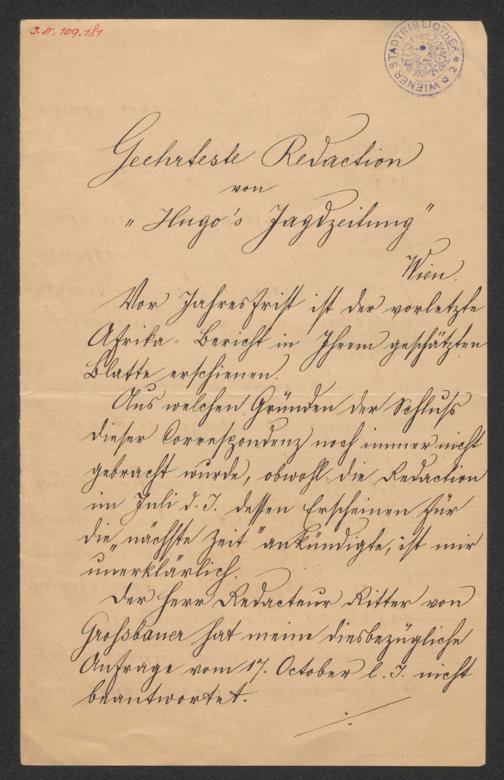 J. N. 109.181
WIENER STADTBIBLIOTHEK
Geehrteste Redaction
von
„Hugo's Jagdzeitung"
Wien.
Vor Jahresfrist ist der vorletzte
Afrika-Bericht in Ihrem geschätzten
Blatte erschienen.
Aus welchen Gründen der Schluss
dieser Correspondenz noch immer nicht
gebracht wurde, obwohl die Redaction
im Juli d. J. dessen Erscheinen für
die „nächste Zeit" ankündigte, ist mir
unerklärlich.
Der Herr Redacteur Ritter von
Grossbauer hat meine diesbezügliche
Anfrage vom 17. October l. J. nicht
beantwortet.